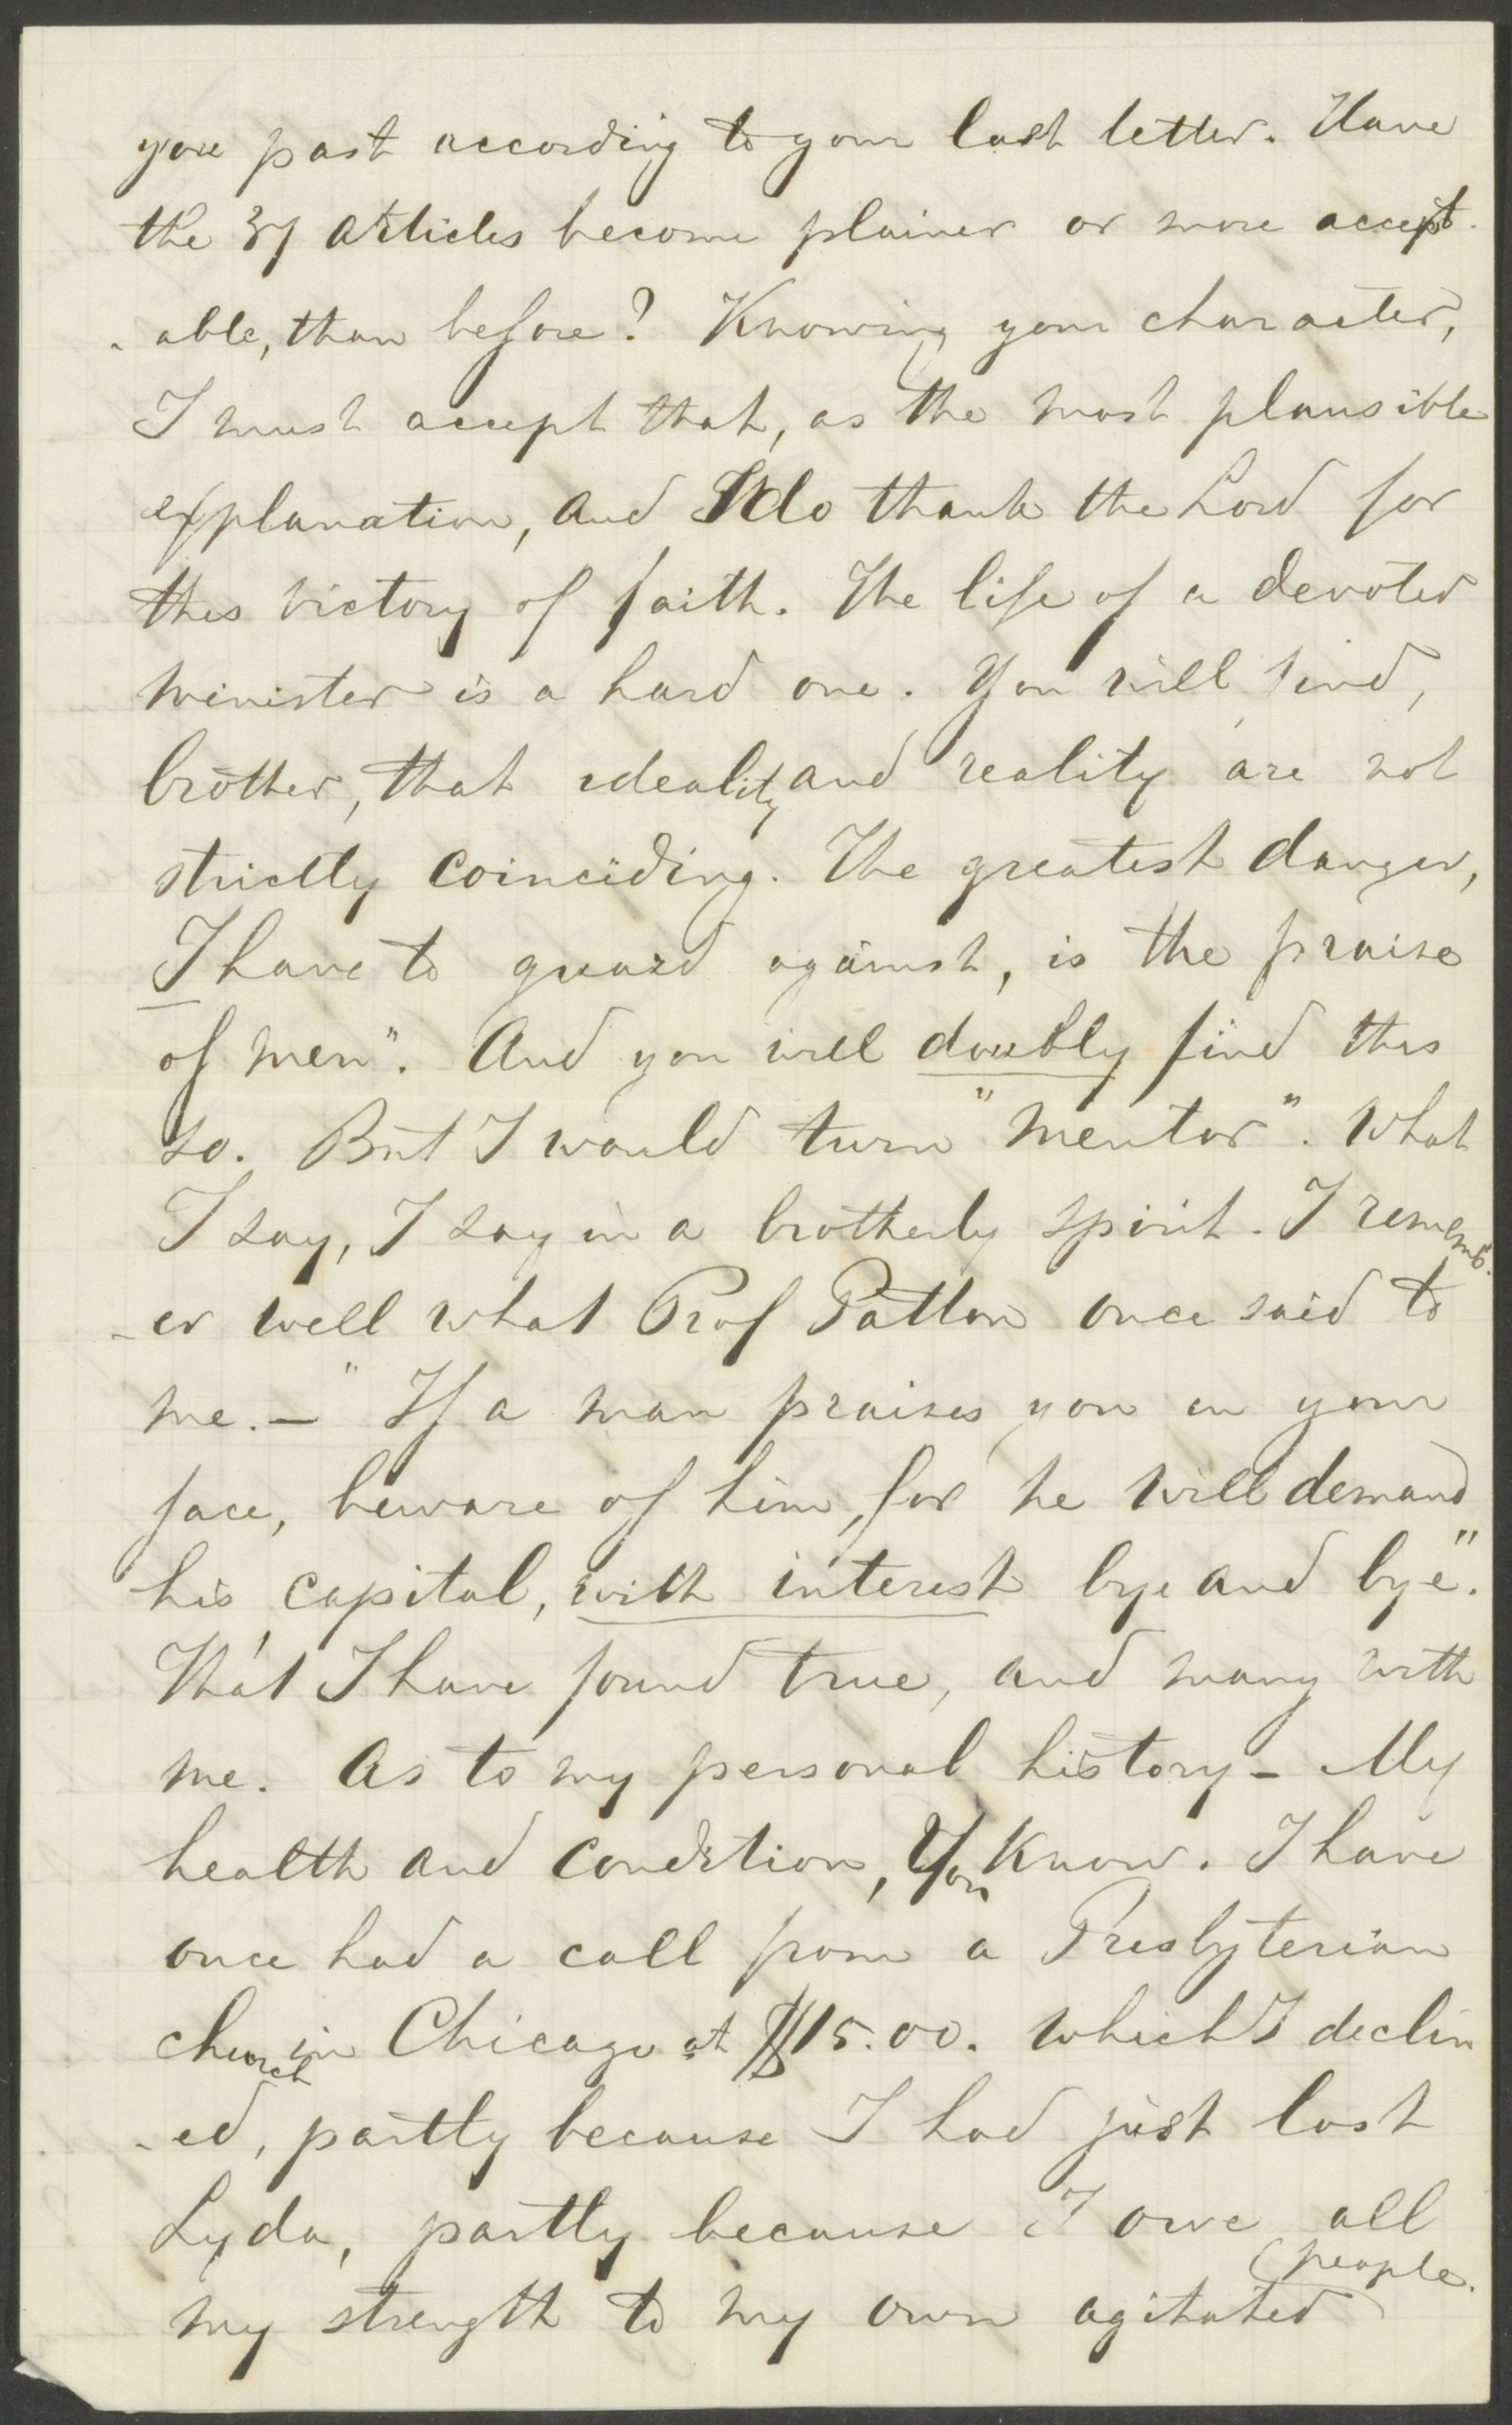 you past according to your last letter. Have
the 37 articles become plainer or more accept-
-able, than before? Knowing your character,
I must accept that, as the most plausible
explanation, and I do thank the Lord for
this victory of faith. The life of a devoted
minister is a hard one. You will find,
brother, that ideality and reality are not
strictly coinciding. The greatest danger,
I have to guard against, is the praise
of men". And you will doubly find this
so. But I would turn "mentor". What
I say, I say in a brotherly spirit. I rememb-
-er well what Prof Patton once said to
me. — "If a man praises you in your
face, beware of him, for he will demand
his capital, with interest bye and bye".
That I have found true, and many with
me. As to my personal history - My
health and condition, You know. I have
once had a call from a Presbyterian
church in Chicago at $15.00. which I declin
-ed, partly because I had just lost
Lyda, partly because I owe all
my strength to my own agitated people.